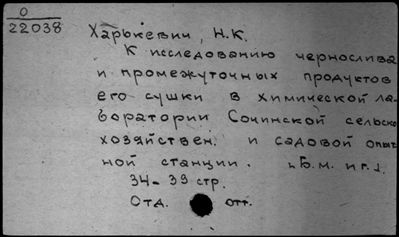 О
22038
Харькевич, Н.К.
К исследованию чернослива
и промежуточных продуктов
его сушки в химической ла-
боратории Сочинской сельско-
хозяйствен. и садовой опыт-
ной станции. [Б.м. и г.].
34-39 стр.
Отд. отт.